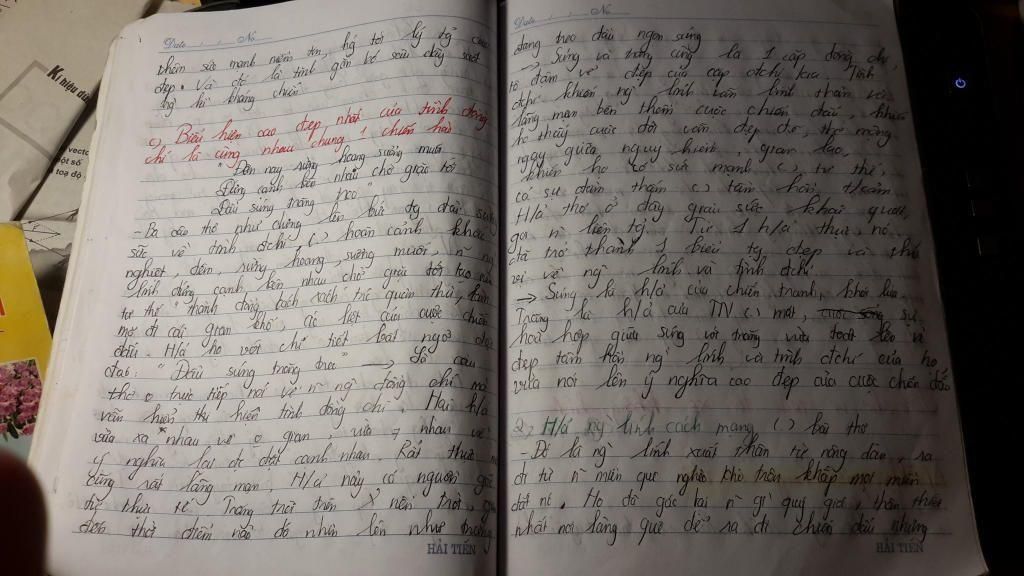 Date No
thêm sức mạnh niềm tin, họ tới lý tg cao
đẹp. Và đc là tình gắn bó sâu dày suốt
hồi kì kháng chiến
c) Biểu hiện cao đẹp nhất của tình đồng
chí là cùng nhau chung 1 chiến hào
"Đêm nay rừng hoang sương muối
Đứng cạnh bên nhau chờ giặc tới
Đầu súng trăng treo"
- Ba câu thơ như dựng lên bức tg đài sừng
sững về tình đchí ( ) hoàn cảnh khắc
nghiệt, đêm, rừng hoang, sương muối, n ng
lính đứng cạnh bên nhau chờ giặc tới tạo nên
tư thế thành đồng vách sắt trc quân thù, làm
mờ đi cái gian khổ, ác liệt của cuộc chiến
đấu. H/á họ với chi tiết bất ngờ độc
đáo: "Đầu súng trăng treo" → Là câu
thơ o trực tiếp nói về n ng đồng chí mà
vẫn hiện thể hiện tình đồng chí. Hai h/á
vừa xa nhau về o gian, vừa ≠ nhau về
ý nghĩa lại đc đặt cạnh nhau. Rất thực mà
cũng rất lãng mạn, H/á này có nguồn gốc
từ thực tế. Trăng trôi trên nền trời,
đến thời điểm nào đó nhìn lên như trăng
HẢI TIẾN
Date No
đang treo đầu ngọn súng
→ Súng và trăng cũng là 1 cặp đồng chí,
tô đậm vẻ đẹp của cặp đchí kia. Tình
đchí khiến ng lính bản lĩnh thêm và
lãng mạn bên thềm cuộc chiến đấu, khiến
họ thấy cuộc đời vẫn đẹp đẽ, thơ mộng
ngay giữa nguy hiểm, gian lao,
khiến họ có sức mạnh ( ) tư thế,
có sự đằm thắm ( ) tâm hồn, t/cảm.
H/á thơ ở đây giàu sức khái quát,
gợi n liên tg. Từ 1 h/á thực, nó
đã trở thành 1 biểu tg đẹp và thú
vị về ng lính và tình đchí.
→ Súng là h/á của chiến tranh, khói lửa.
Trăng là h/á của TN ( ) mát, sự
hoà hợp giữa súng với trăng vừa toát lên vẻ
đẹp tâm hồn ng lính và tình đchí của họ
vừa nói lên ý nghĩa cao đẹp của cuộc chiến đấu
2, H/á ng lính cách mạng ( ) bài thơ
- Đó là ng lính xuất thân từ nông dân, ra
đi từ n miền quê nghèo khó trên khắp mọi miền
đất nc. Họ đã gác lại n gì quý giá, thân thiết
nhất nơi làng quê để ra đi chiến đấu nhưng
HẢI TIẾN
Kí hiệu dù
vectơ
một số
toạ độ